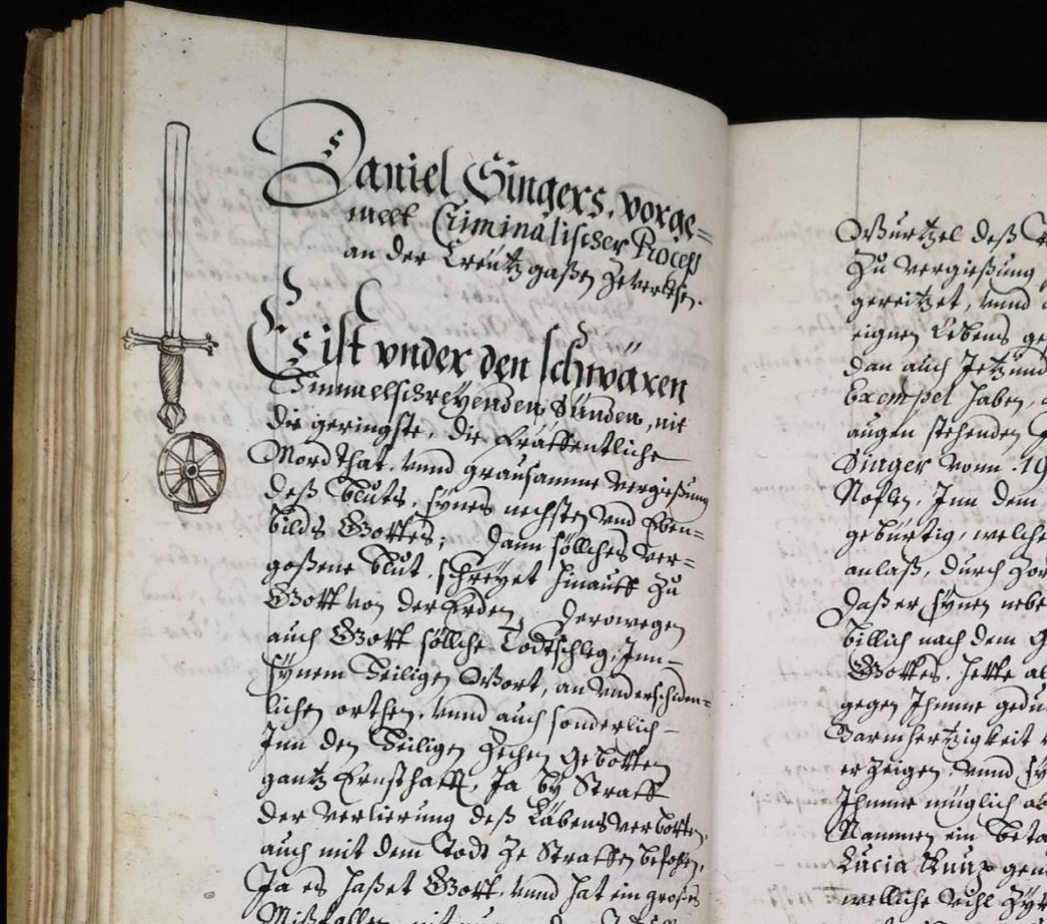 Daniel Singers, vorge=
melt Criminalischer Proceß
an der Creützgaßen Zeverläsen.
Es ist vnder den schwären
Himmelschreÿenden Sünden, nit
die geringste, die Fräffentliche
Mordthat, vnnd grausamme vergießung
deß Bluts, sÿnes nechsten vnd Eben=
bilds Gottes; Dann söllches ver=
goßene Blut, schreÿet hinauff Zu
Gott von der Erden, Derowegen
auch Gott söllche Todtschleg, Inn
sÿnem Heiligen Wort, an vnderschiden=
lichen orthen, vnnd auch sonderlich
Inn den Heiligen Zechen Gebotten
gantz Ernsthafft, Ja bÿ Straff
der verlierung deß Läbens verbotten,
auch mit dem Todt Ze Straffen befohlen,
Ja es haßet Gott, vnnd hat ein großes
Mißfallen
Wurtzel deß
Zu vergießung
gereitzet, vnnd
eignen Läbens
dan auch Jetzund
Exempel haben,
augen stehenden
Singer vonn 19
Noflen, Inn dem
gebürtig, welche
anlaß, durch Zor
daß er sÿnen nebe
billich nach dem
Gottes, hette al
gegen Ihmme gedu
Barmhertzigkeit
erZeigen, vnnd sÿ
Ihmme müglich
Nammen ein
Lucia
welliche